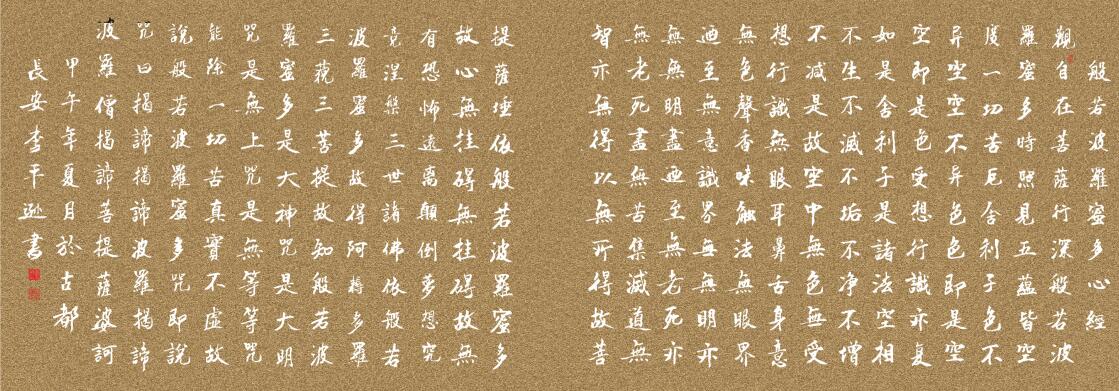 般若波羅蜜多心經
觀自在菩薩行深般若波
羅蜜多時照見五蘊皆空
度一切苦厄舍利子色不
异空空不异色色即是空
空即是色受想行識亦复
如是舍利子是諸法空相
不生不滅不垢不净不增
不减是故空中無色無受
想行識無眼耳鼻舌身意
無色聲香味触法無眼界
迺至無意識界無無明亦
無無明盡迺至無老死亦
無老死盡無苦集滅道無
智亦無得以無所得故菩
提薩埵依般若波羅蜜多
故心無挂碍無挂碍故無
有恐怖遠離顛倒夢想究
竟涅槃三世諸佛依般若
波羅蜜多故得阿耨多羅
三藐三菩提故知般若波
羅蜜多是大神咒是大明
咒是無上咒是無等等咒
能除一切苦真實不虛故
說般若波羅蜜多咒即說
咒曰揭諦揭諦波羅揭諦
波羅僧揭諦菩提薩婆訶
甲午年夏月於古都
長安李平逊書